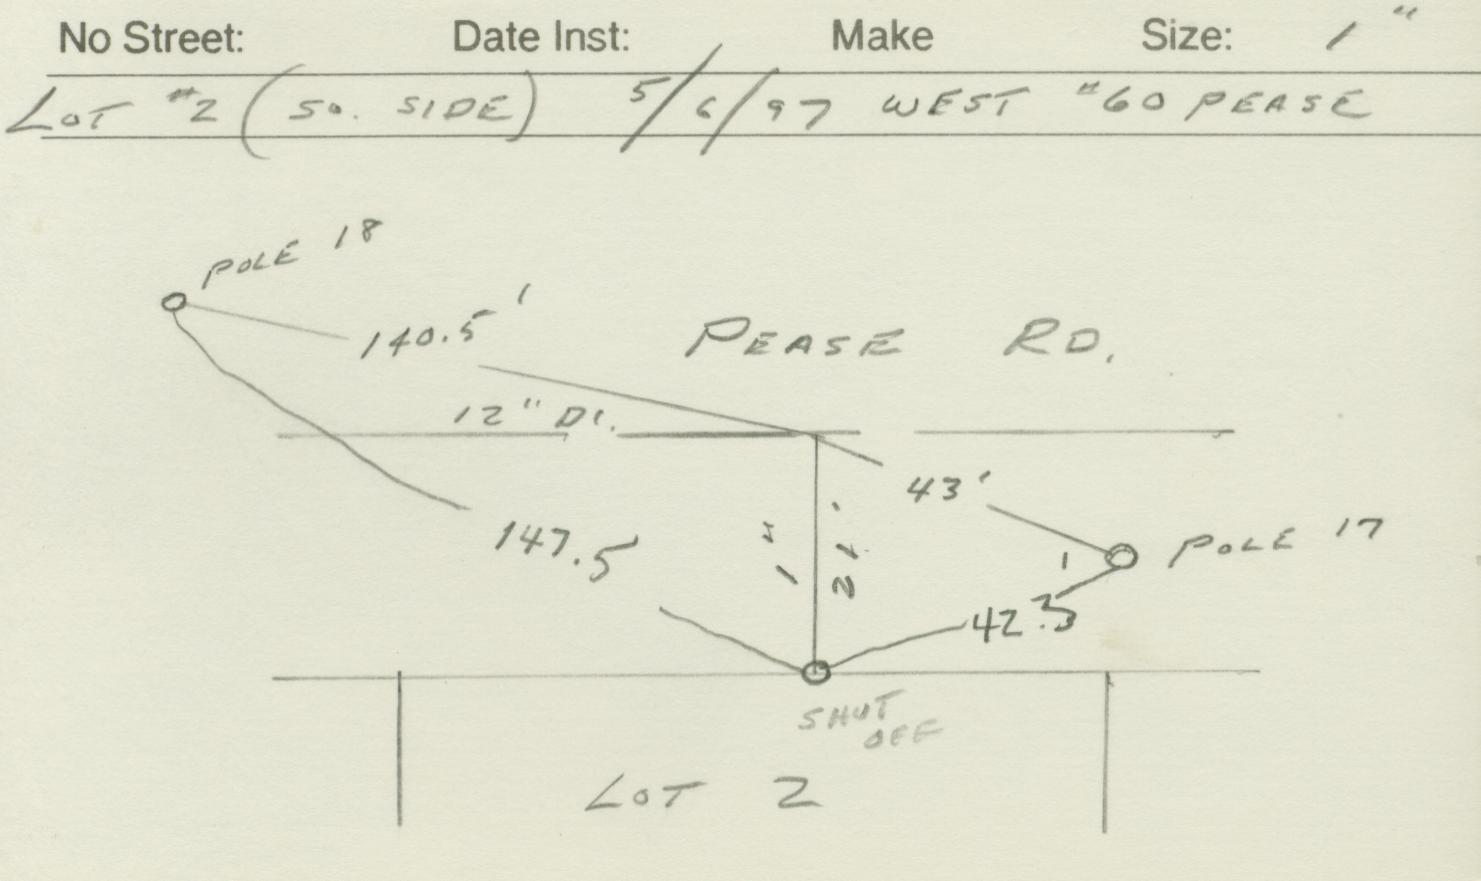 No Street: Date Inst: Make Size: 1"
LOT #2 (SO. SIDE) 5/6/97 WEST #60 PEASE
POLE 18
140.5'
PEASE RD.
12" DI.
43'
147.5'
1" 21'
POLE 17
42.5'
SHUT
OFF
LOT 2